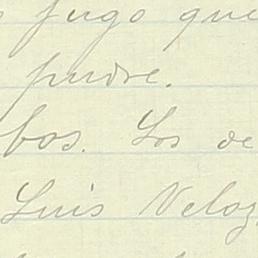 jugo que
pudre.
bos. Los de
Luis Veloz